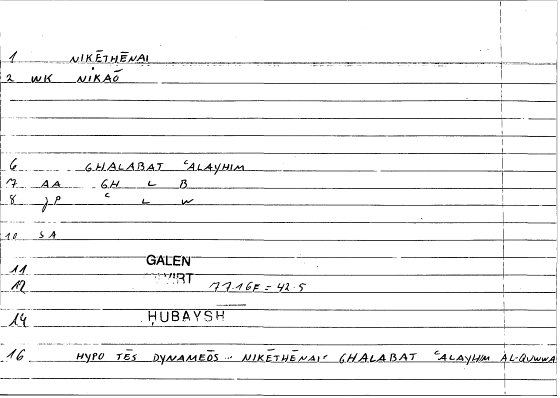 1 NIKĒTHĒNAI
2 WK NIKAŌ
6 GHALABAT ʿALAYHIM
7 AA GH L B
8 JP ʿ L W
10 SA
11 GALEN
12 VIRT 77.16F = 42.5
14 ḤUBAYSH
16 HYPO TĒS DYNAMEŌS .. NIKĒTHĒNAI = GHALABAT ʿALAYHIM AL-QUWWA